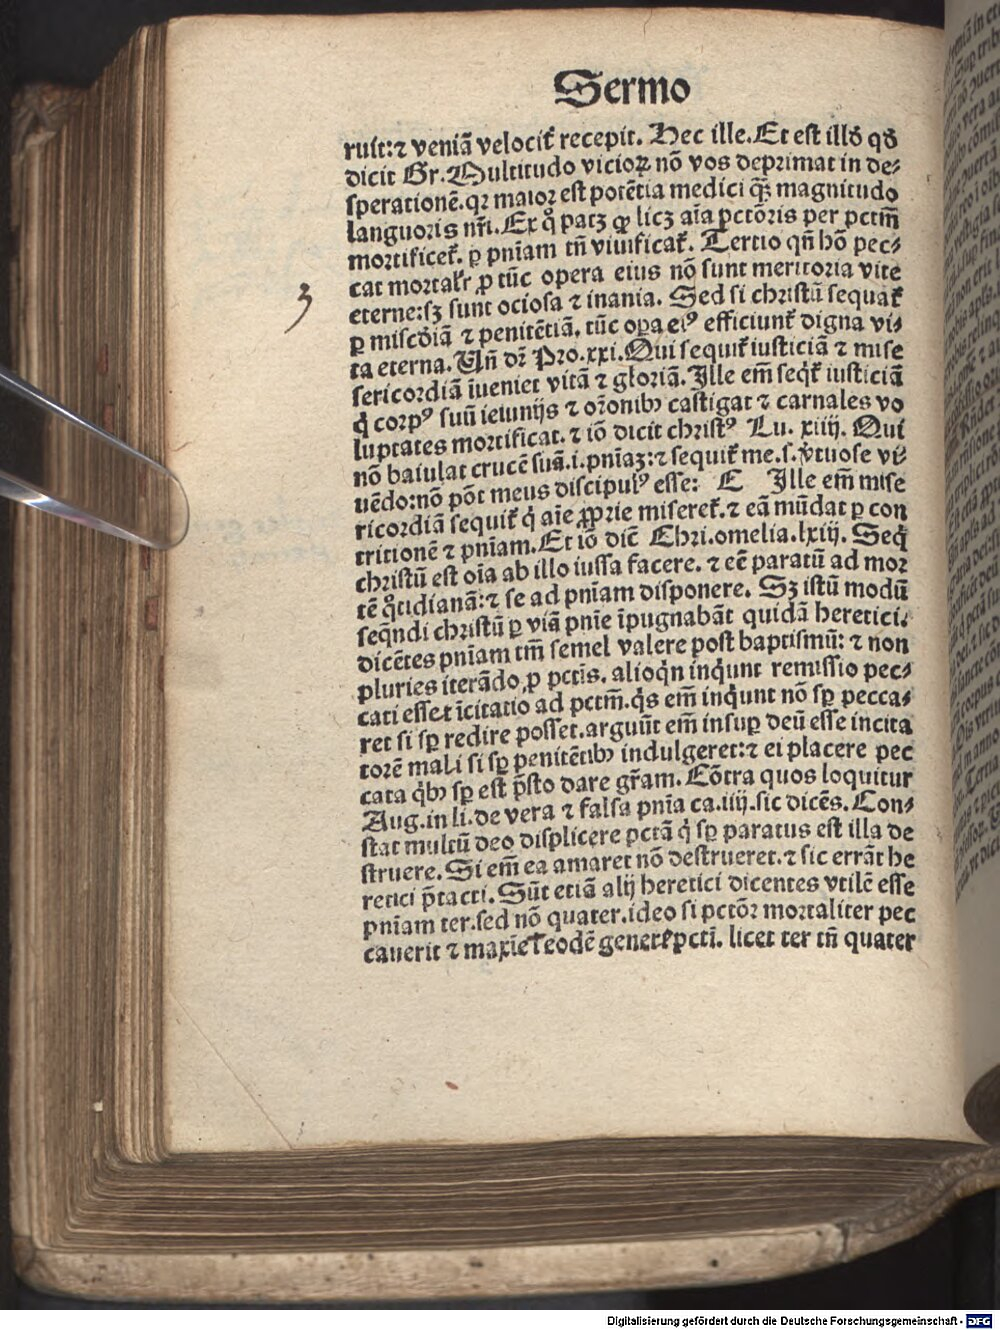 Sermo
ruit:⁊ veniã velocit᷑ recepit. Hec ille. Et est illð qð
dicit Gr. Multitudo vicioꝝ nõ vos deprimat in de⸗
sperationẽ. qꝛ maior est potẽtia medici qȝ̃ magnitudo
languoris nr̃i. Ex q̊ patȝ ꝙ licȝ aĩa pctõris per pctm̃
mortificet᷑. ꝑ pnĩam tñ viuificat᷑. Tertio qñ hõ pec⸗
cat mortalr̃ ꝓ tũc opera eius nõ sunt meritoria vite
eterne:sȝ sunt ociosa ⁊ inania. Sed si christũ sequat᷑
ꝑ miscðiã ⁊ penitẽtiã, tũc oꝑa eiꝰ efficiunt᷑ digna vi⸗
ta eterna. Uñ dr̃ Pro.xxi. Qui sequit᷑ iusticiã ⁊ mise
sericordiã ĩueniet vitã ⁊ gloriã. Ille em̃ seqt᷑ iusticiã
q̇ corpꝰ suũ ieiunijs ⁊ or̃onibꝰ castigat ⁊ carnales vo
luptates mortificat. ⁊ iõ dicit christꝰ Lu. xiiij. Qui
nõ baiulat crucẽ suã.i.pnĩaȝ:⁊ sequit᷑ me.s.v̓tuose vi⸗
uẽdo:nõ põt meus discipulꝰ esse: E Ille em̃ mise
ricordiã sequit᷑ q̇ aĩe ꝓprie miseret᷑. ⁊ eã mũdat ꝑ con
tritionẽ ⁊ pnĩam. Et iõ dic̃ Chri.omelia.lxiij. Seq̇
christũ est oĩa ab illo iussa facere. ⁊ eẽ paratũ ad mor
tẽ q̊tidianã:⁊ se ad pnĩam disponere. Sȝ istũ modũ
seqñdi christũ ꝑ viã pnĩe ĩpugnabãt quidã heretici.
dicẽtes pnĩam tm̃ semel valere post baptismũ: ⁊ non
pluries iterãdo ꝓ pctĩs. alioqñ inq̇unt remissio pec⸗
cati esset ĩcitatio ad pctm̃. q̇s em̃ inq̇unt nõ sꝑ pecca⸗
ret si sꝑ redire posset. arguũt em̃ insuꝑ deũ esse incita
torẽ mali si sꝑ penitẽtibꝰ indulgeret:⁊ ei placere pec
cata q̇bꝰ sꝑ est p̃sto dare gr̃am. Cõtra quos loquitur
Aug. in li. de vera ⁊ falsa pnĩa ca.iiij. sic dicẽs. Con⸗
stat multũ deo displicere pctã q̇ sꝑ paratus est illa de
struere. Si em̃ ea amaret nõ destrueret. ⁊ sic errãt he
retici p̃tacti. Sũt etiã alij heretici dicentes vtilẽ esse
pnĩam ter. sed nõ quater. ideo si pctõr mortaliter pec
cauerit ⁊ maxĩe eodẽ genere pcti. licet ter tñ quater
3
Digitalisierung gefördert durch die Deutsche Forschungsgemeinschaft - DFG